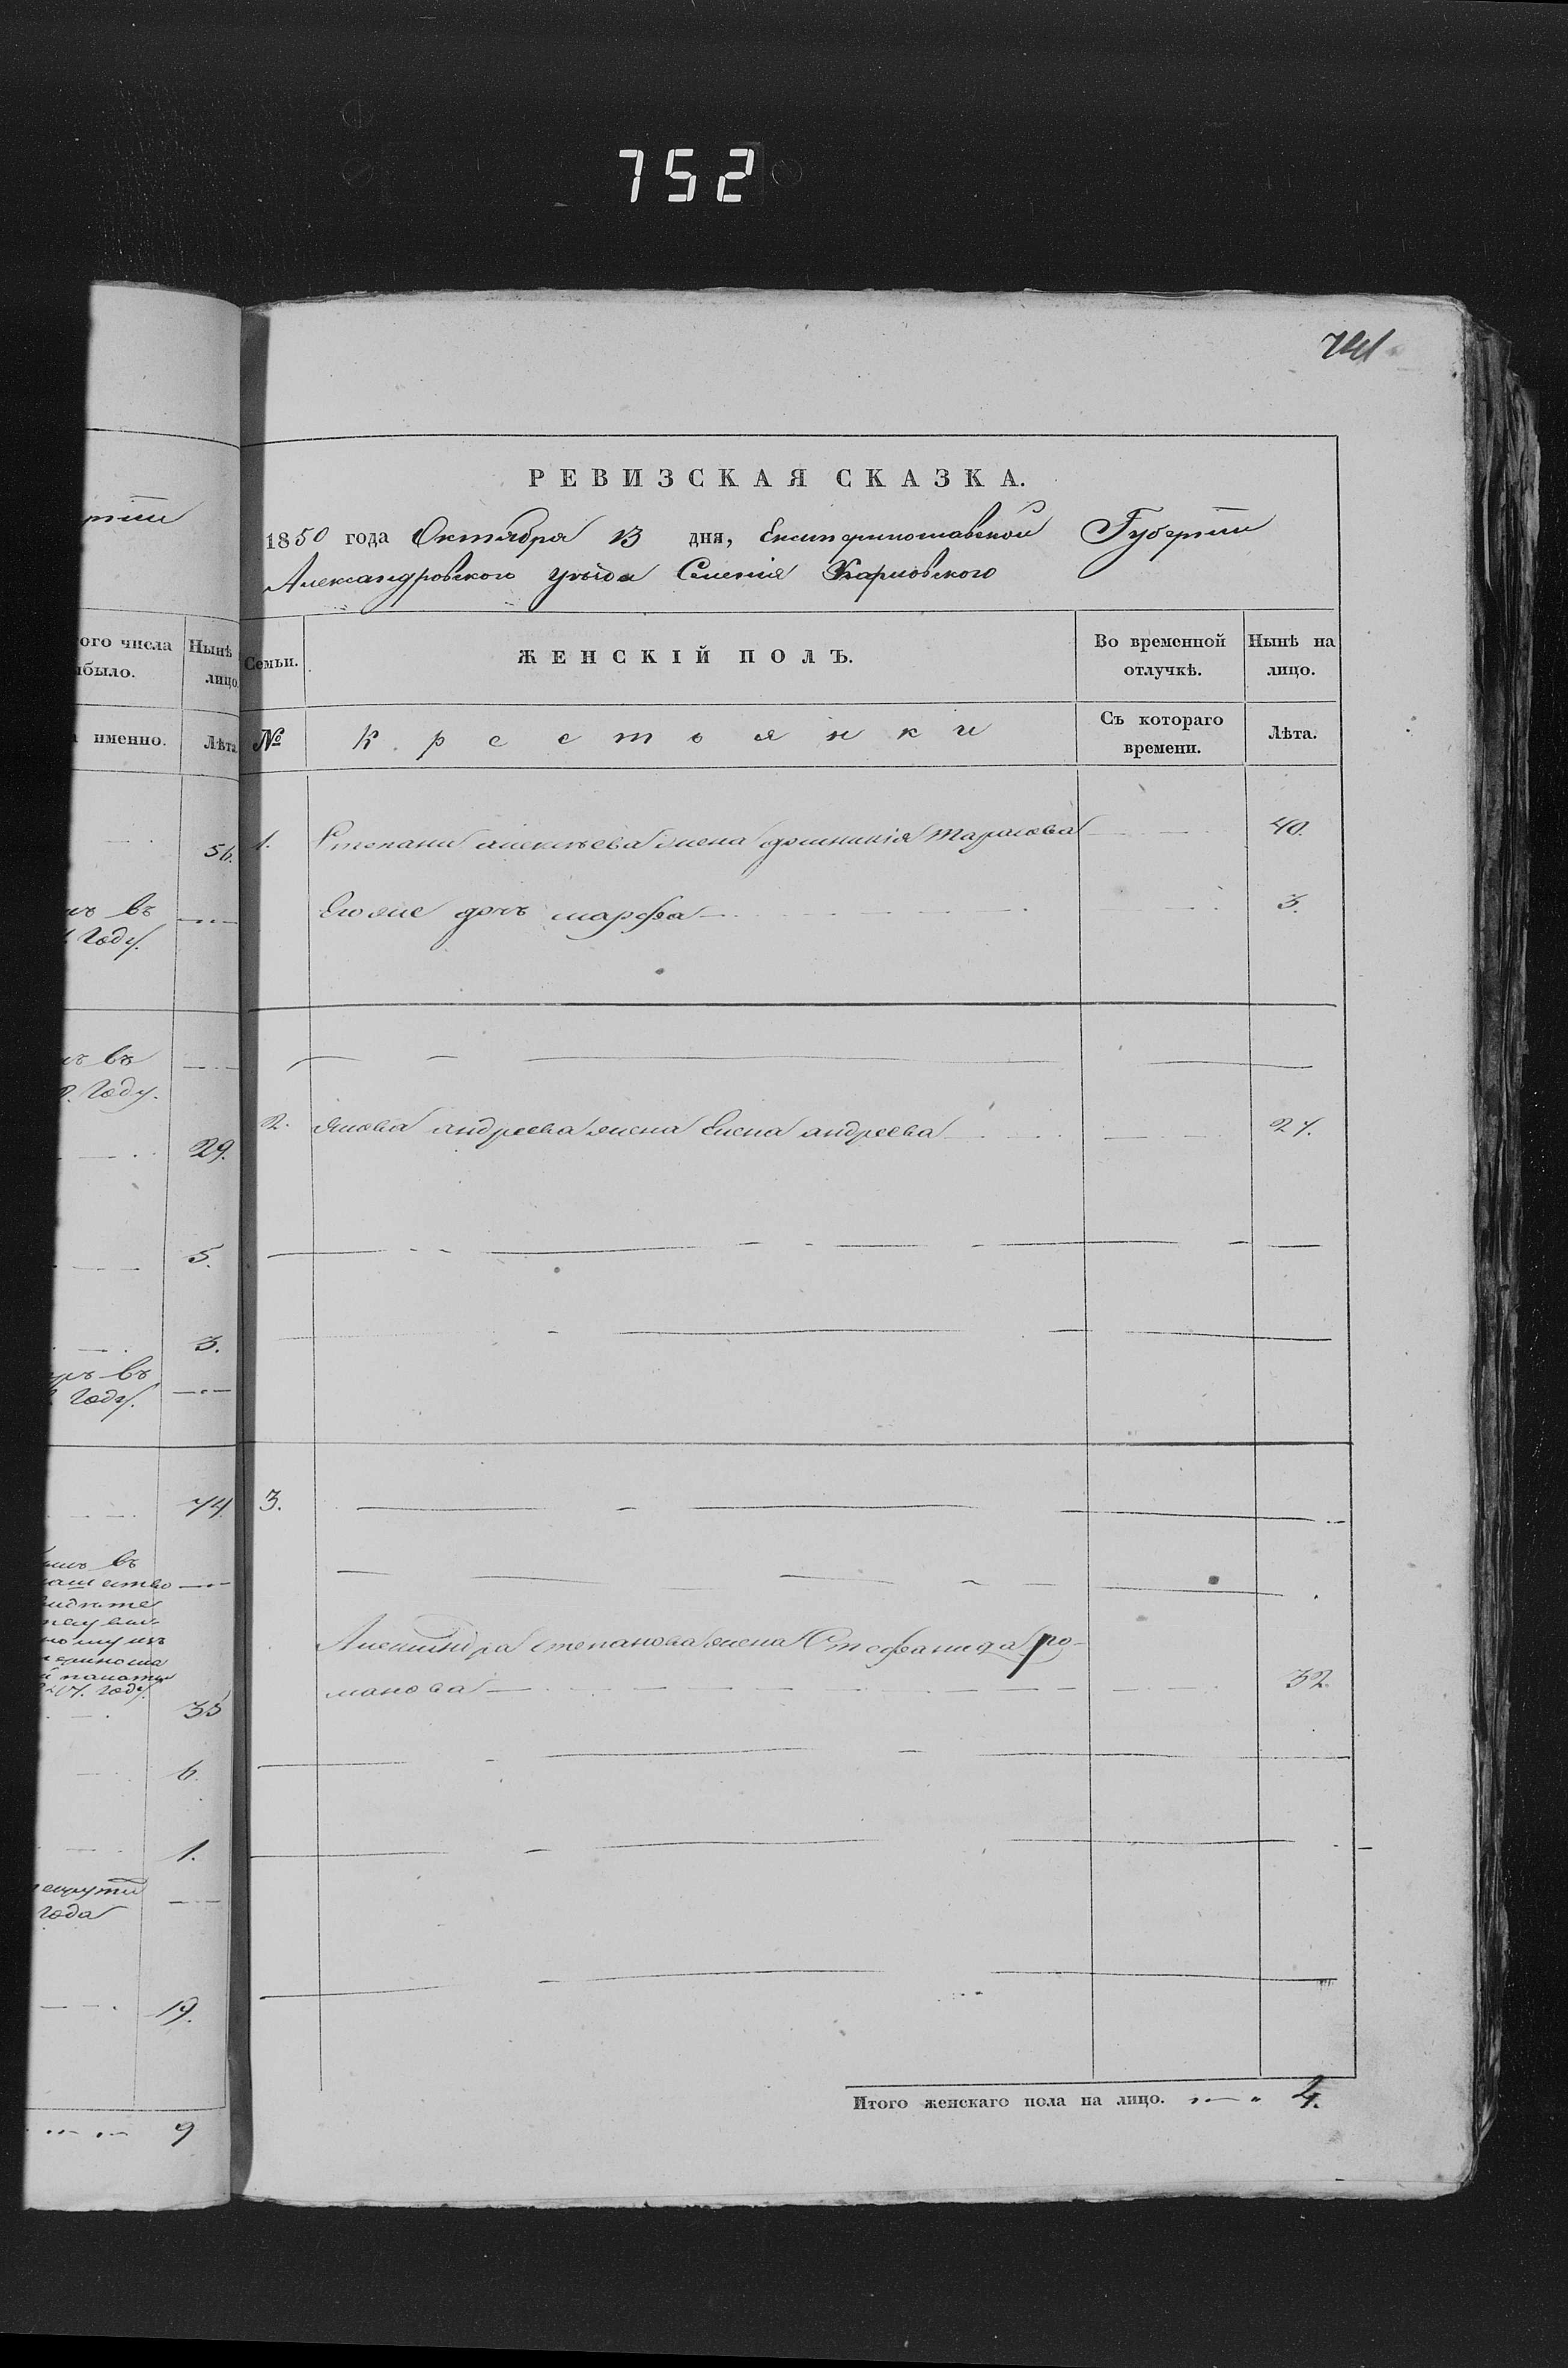 752
741
РЕВИЗСКАЯ СКАЗКА.
1850 года Октября 13 дня, Екатеринославской Губернїи
Александровского уезда Селенія Карловского
Семьи.
ЖЕНСКІЙ ПОЛЪ.
Во временной отлучкѣ.
Нынѣ на лицо.
№
Крестьянки
Съ котораго времени.
Лѣта.
1. Степана Алексѣева жена домникія Тарасова 40.
Ево же дочь марфа 3.
2. Якова андреева жена Елена андреева 27.
3.
Александра степанова жена Стефанида ро-
манова 32.
Итого женскаго пола на лицо. 4.
ого числа
было.
Нынѣ
лицо
именно.
Лѣта
56.
въ
году.
въ
году.
29.
5.
3.
въ
году.
74.
въ
35
6.
1.
года
19.
9